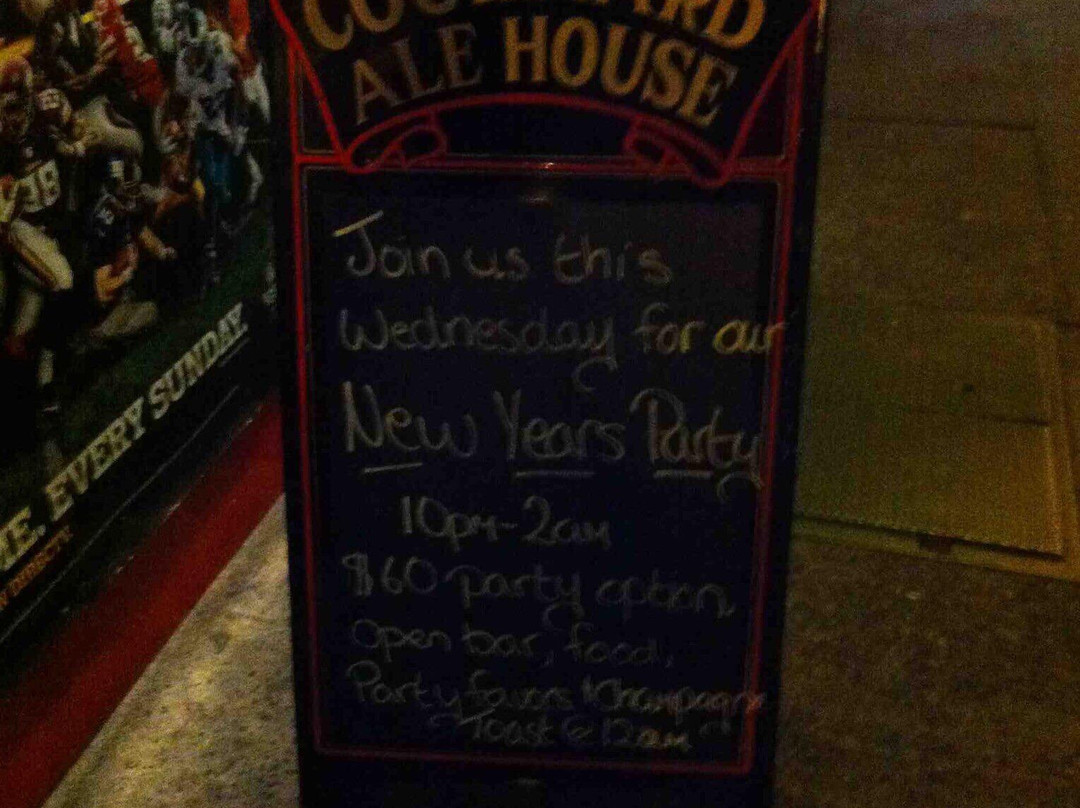 ALE HOUSE
Join us this
Wednesday for our
New Years Party
10pm-2am
$60 party option,
Open bar, food,
Party favors & Champagne
Toast @ 12am
EVERY SUNDAY.